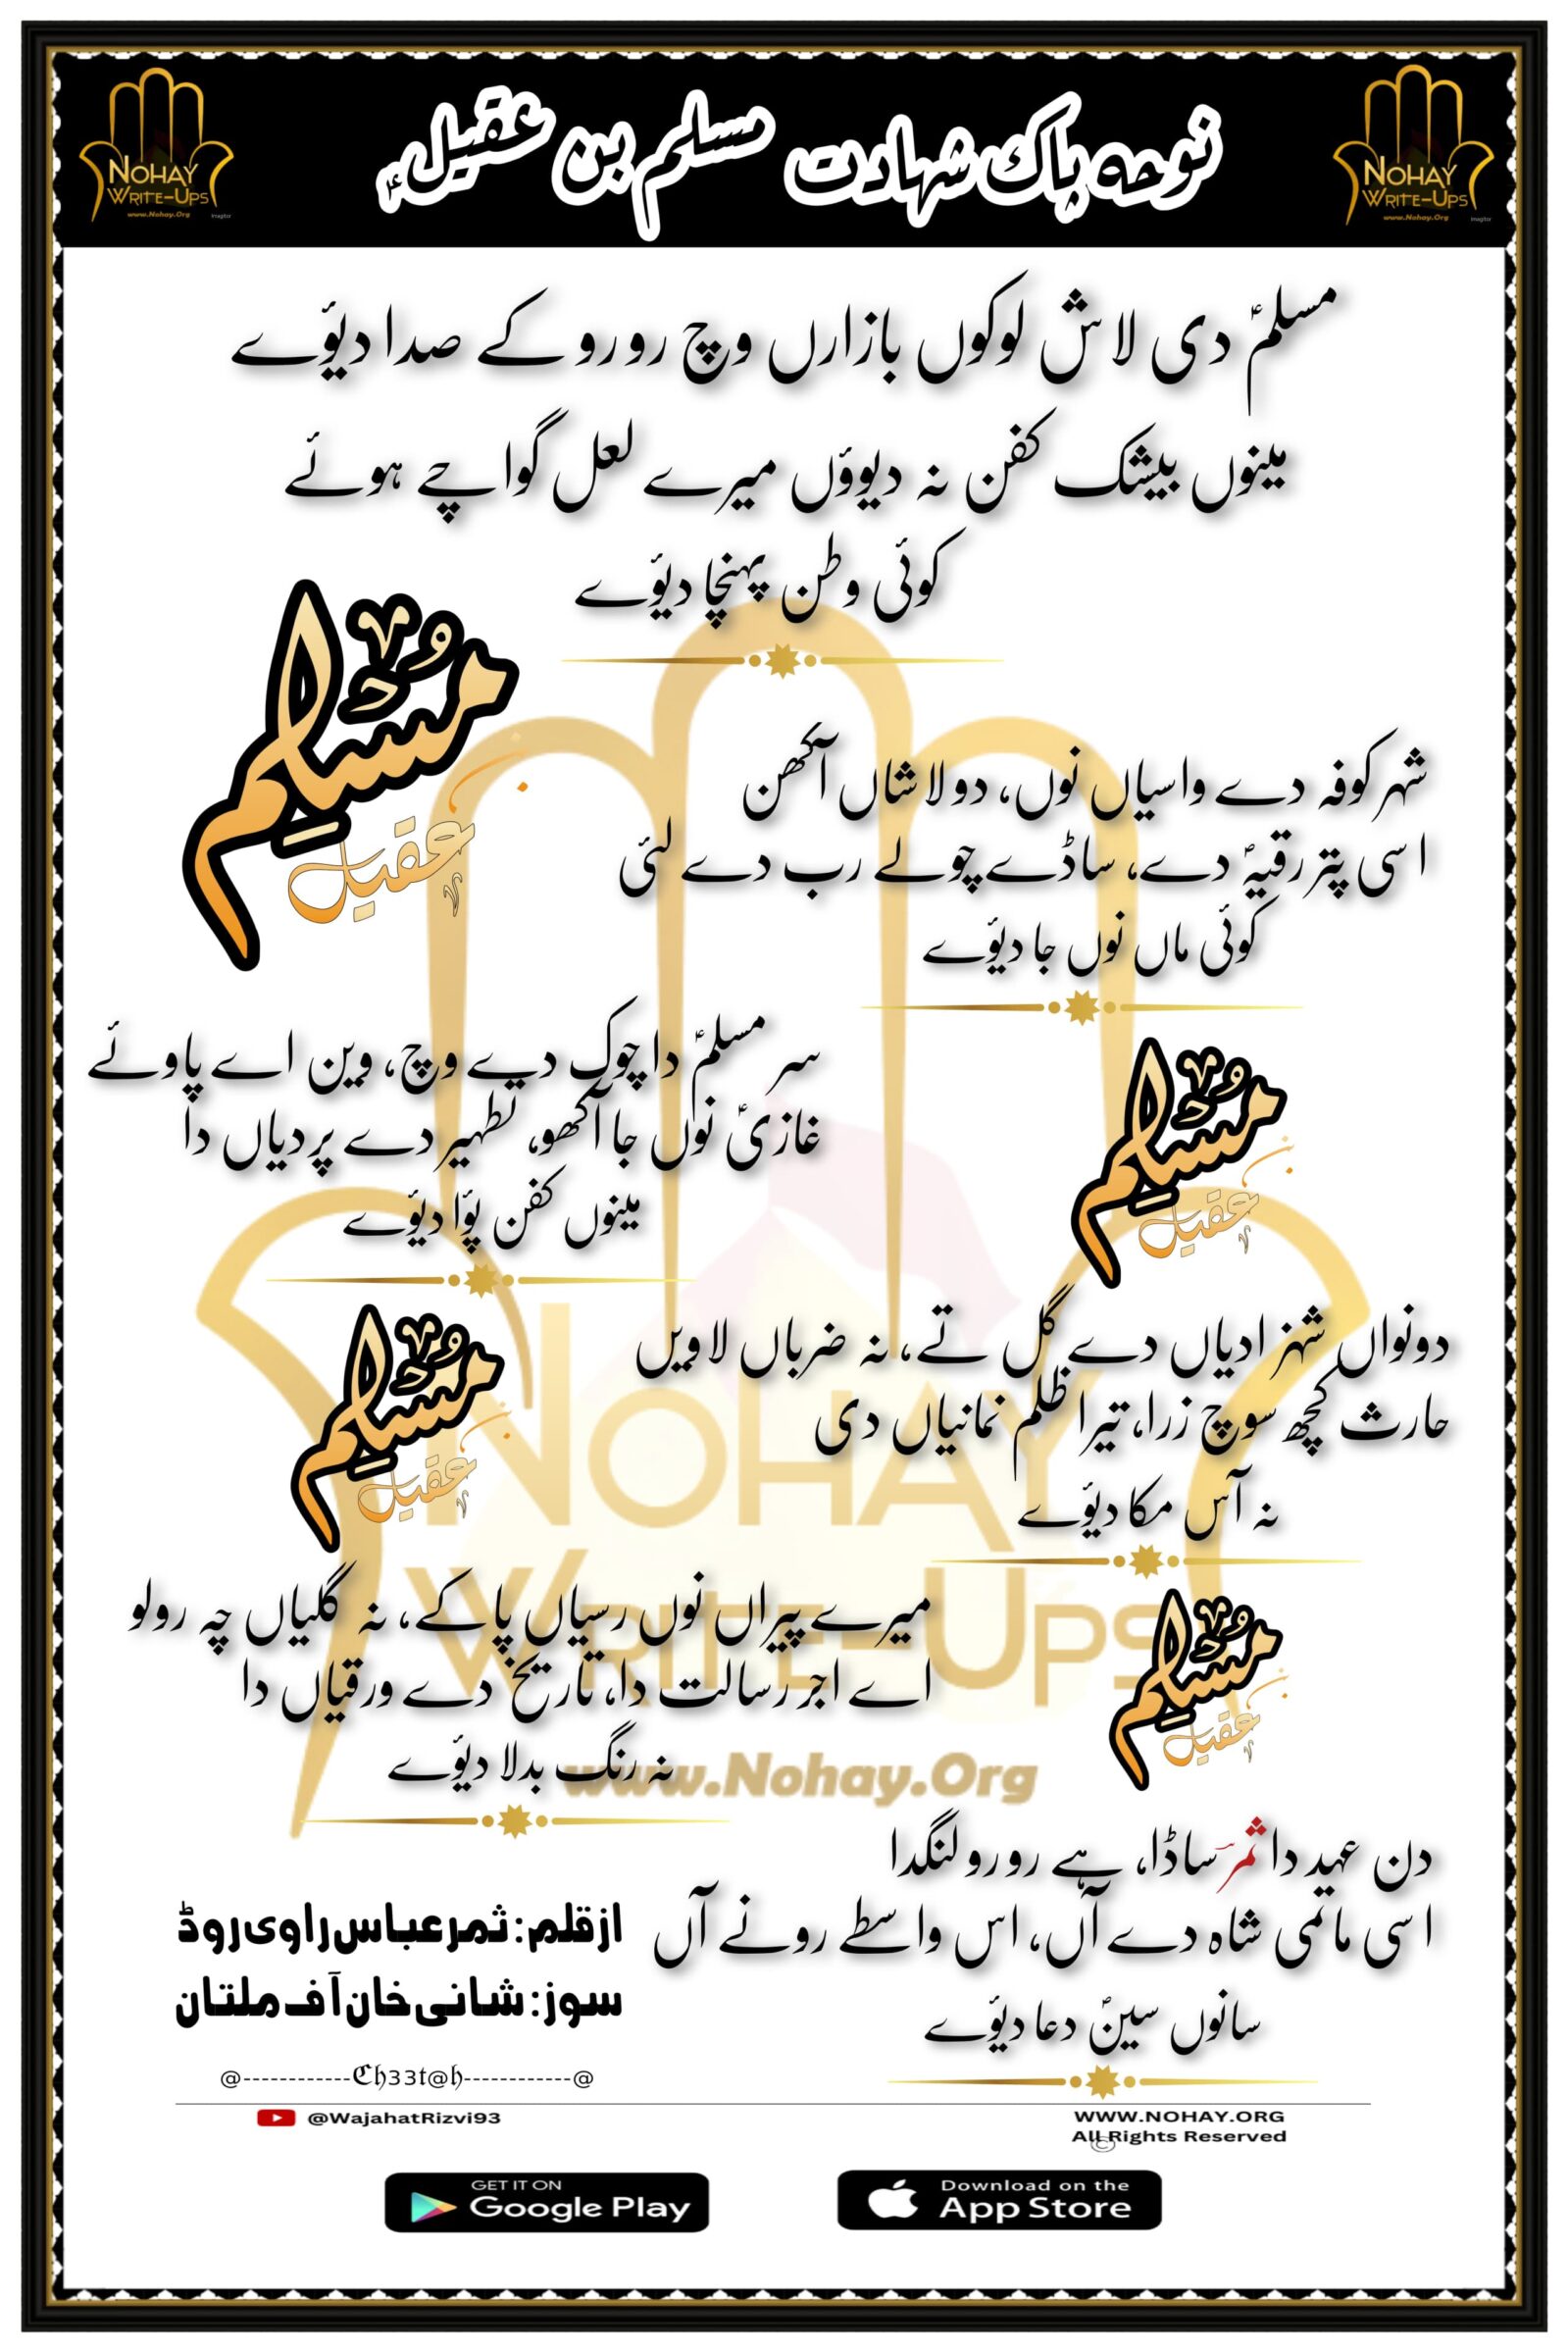 NOHAY
WRITE-UPS
www.Nohay.Org
نوحہ پاک شہادت مسلم بن عقیلؑ
NOHAY
WRITE-UPS
www.Nohay.Org
مسلمؑ دی لاش لوکوں بازارں وچ رو رو کے صدا دیوٗے
مینوں بیشک کفن نہ دیووٗں میرے لعل گواچے ہوئے
کوئی وطن پہنچا دیوٗے
مُسلم
بن
عقیل
شہر کوفہ دے واسیاں نوں، دو لاشاں آکھن
اسی پتر رقیہؑ دے، ساڈے چولے رب دے لئی
کوئی ماں نوں جا دیوٗے
سر مسلمؑ دا چوک دے وچ، وین اے پاوئے
غازیؑ نوں جا آکھو، تطہیر دے پردیاں دا
مینوں کفن پوٗا دیوٗے
مُسلم
بن
عقیل
دونواں شہزادیاں دے گل تے، نہ ضرباں لاویں
حارث کچھ سوچ زرا، تیرا ظلم نمانیاں دی
نہ آس مکا دیوٗے
مُسلم
بن
عقیل
میرے پیراں نوں رسیاں پا کے، نہ گلیاں چہ رولو
اے اجر رسالت دا، تاریخ دے ورقیاں دا
نہ رنگ بدلا دیوٗے
مُسلم
بن
عقیل
NOHAY
WRITE-UPS
www.Nohay.Org
دن عہید دا ثمرؔ ساڈا، ہے رو رو لنگدا
اسی ماتمی شاہ دے آں، اس واسطے رونے آں
سانوں سینؑ دعا دیوٗے
ازقلم: ثمر عباس راوی روڈ
سوز: شانی خان آف ملتان
@------------Ch33t@h------------@
@WajahatRizvi93
WWW.NOHAY.ORG
All Rights Reserved
©
GET IT ON
Google Play
Download on the
App Store